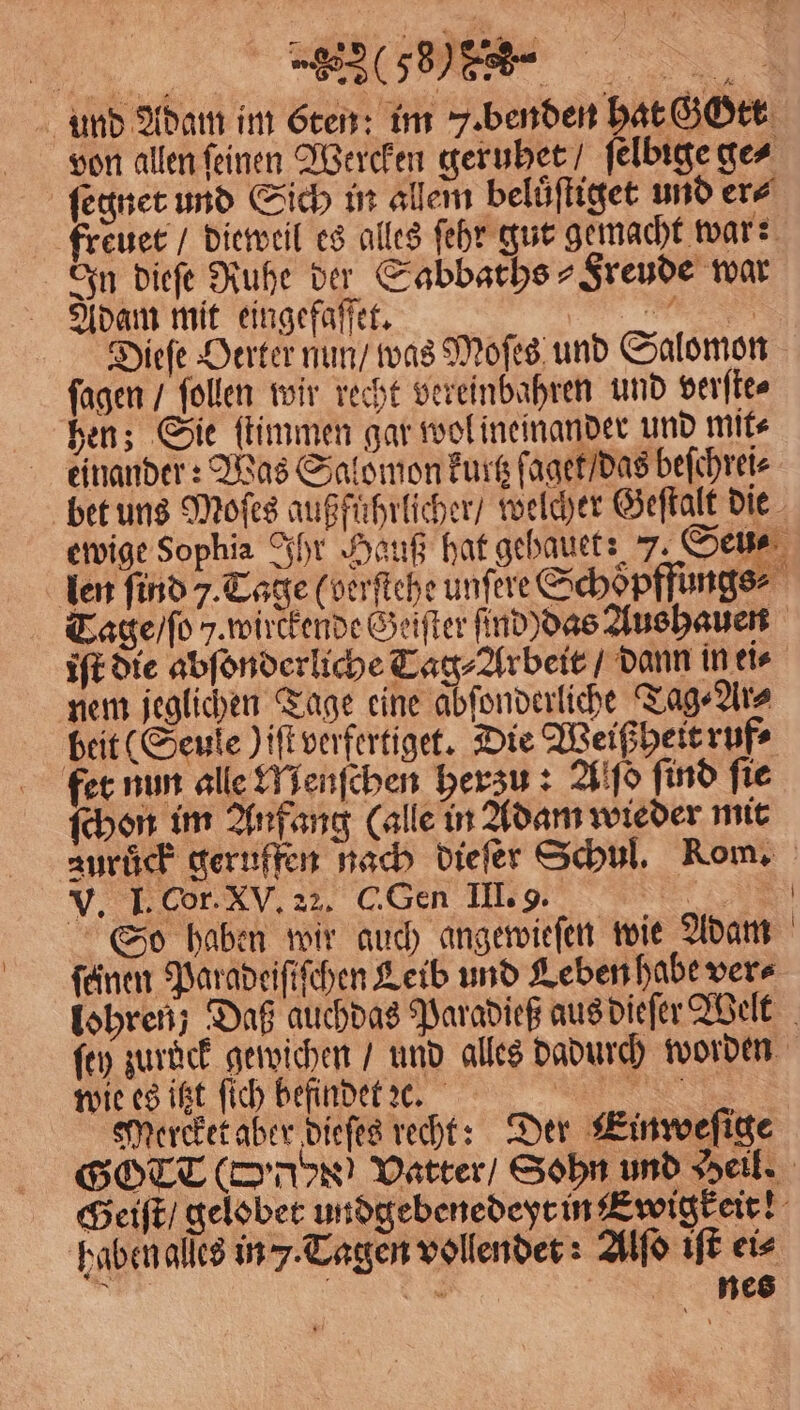 (58)
und Adam im 6ten: im 7.benden hat GOtt
von allen ſeinen Wercken geruhet / ſelbige ge⸗
ſegnet und Sich in allem beluͤſtiget und er⸗
freuet / dieweil es alles ſehr gut gemacht war:
In dieſe Ruhe der Sabbaths⸗Freude war
Adam mit eingefaſſet.
Dieſe Oerter nun/ was Moſes und Salomon
ſagen / ſollen wir recht vereinbahren und verſte⸗
hen; Sie ſtimmen gar wol ineinander und mit⸗
einander: Was Salomon kurtz ſaget/das beſchrei⸗
bet uns Moſes außfuͤhrlicher/ welcher Geſtalt die
ewige Sophia Ihr Hauß hat gebauet: 7. Seu⸗
len ſind 7. Tage (verſtehe unſere Schoͤpffungs⸗
Tage/ſo 7. wirckende Geiſter ſind)das Aushauen
iſt die abſonderliche Tag⸗Arbeit / dann in ei⸗
nem jeglichen Tage eine abſonderliche Tag⸗Ar⸗
beit (Seule )iſt verfertiget. Die Weißheit ruf⸗
fet nun alle Menſchen herzu: Alſo ſind ſie
ſchon im Anfang (alle in Adam wieder mit
zuruͤck geruffen nach dieſer Schul. Rom.
V. I. Cor. XV. 22. C. Gen III. 9.
So haben wir auch angewieſen wie Adam
ſeinen Paradeiſiſchen Leib und Leben habe ver⸗
lohren; Daß auchdas Paradieß aus dieſer Welt
ſey zuruͤck gewichen / und alles dadurch worden
wie es itzt ſich befindet ꝛc.
Mercket aber dieſes recht: Der Einweſige
GOTT (אלהים) Vatter/ Sohn und Heil.
Geiſt/ gelobet undgebenedeyt in Ewigkeit!
haben alles in 7. Tagen vollendet: Alſo iſt ei⸗
nes